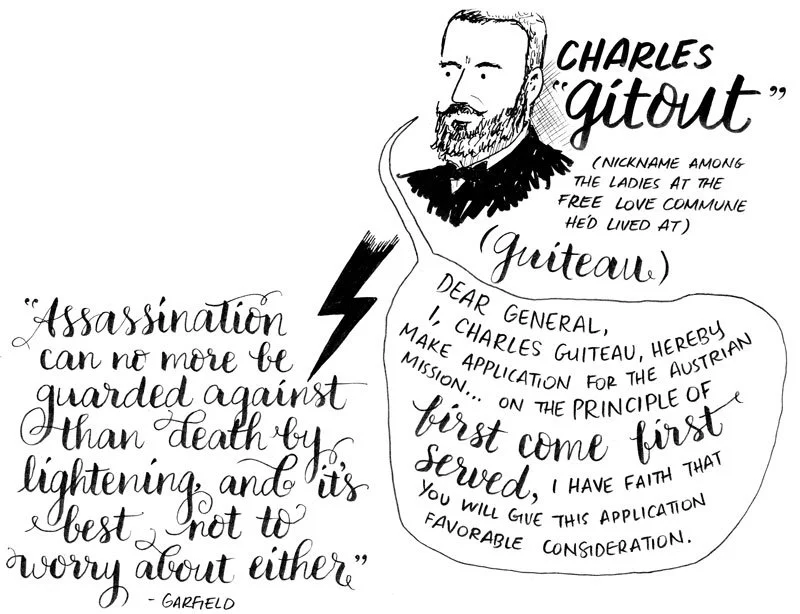 CHARLES
"gitout"
(NICKNAME AMONG
THE LADIES AT THE
FREE LOVE COMMUNE
HE'D LIVED AT)
(guiteau)
DEAR GENERAL,
I, CHARLES GUITEAU, HEREBY
MAKE APPLICATION FOR THE AUSTRIAN
MISSION... ON THE PRINCIPLE OF
first come first
served, I HAVE FAITH THAT
YOU WILL GIVE THIS APPLICATION
FAVORABLE CONSIDERATION.
"Assassination
can no more be
guarded against
than death by
lightening, and it's
best not to
worry about either."
- GARFIELD